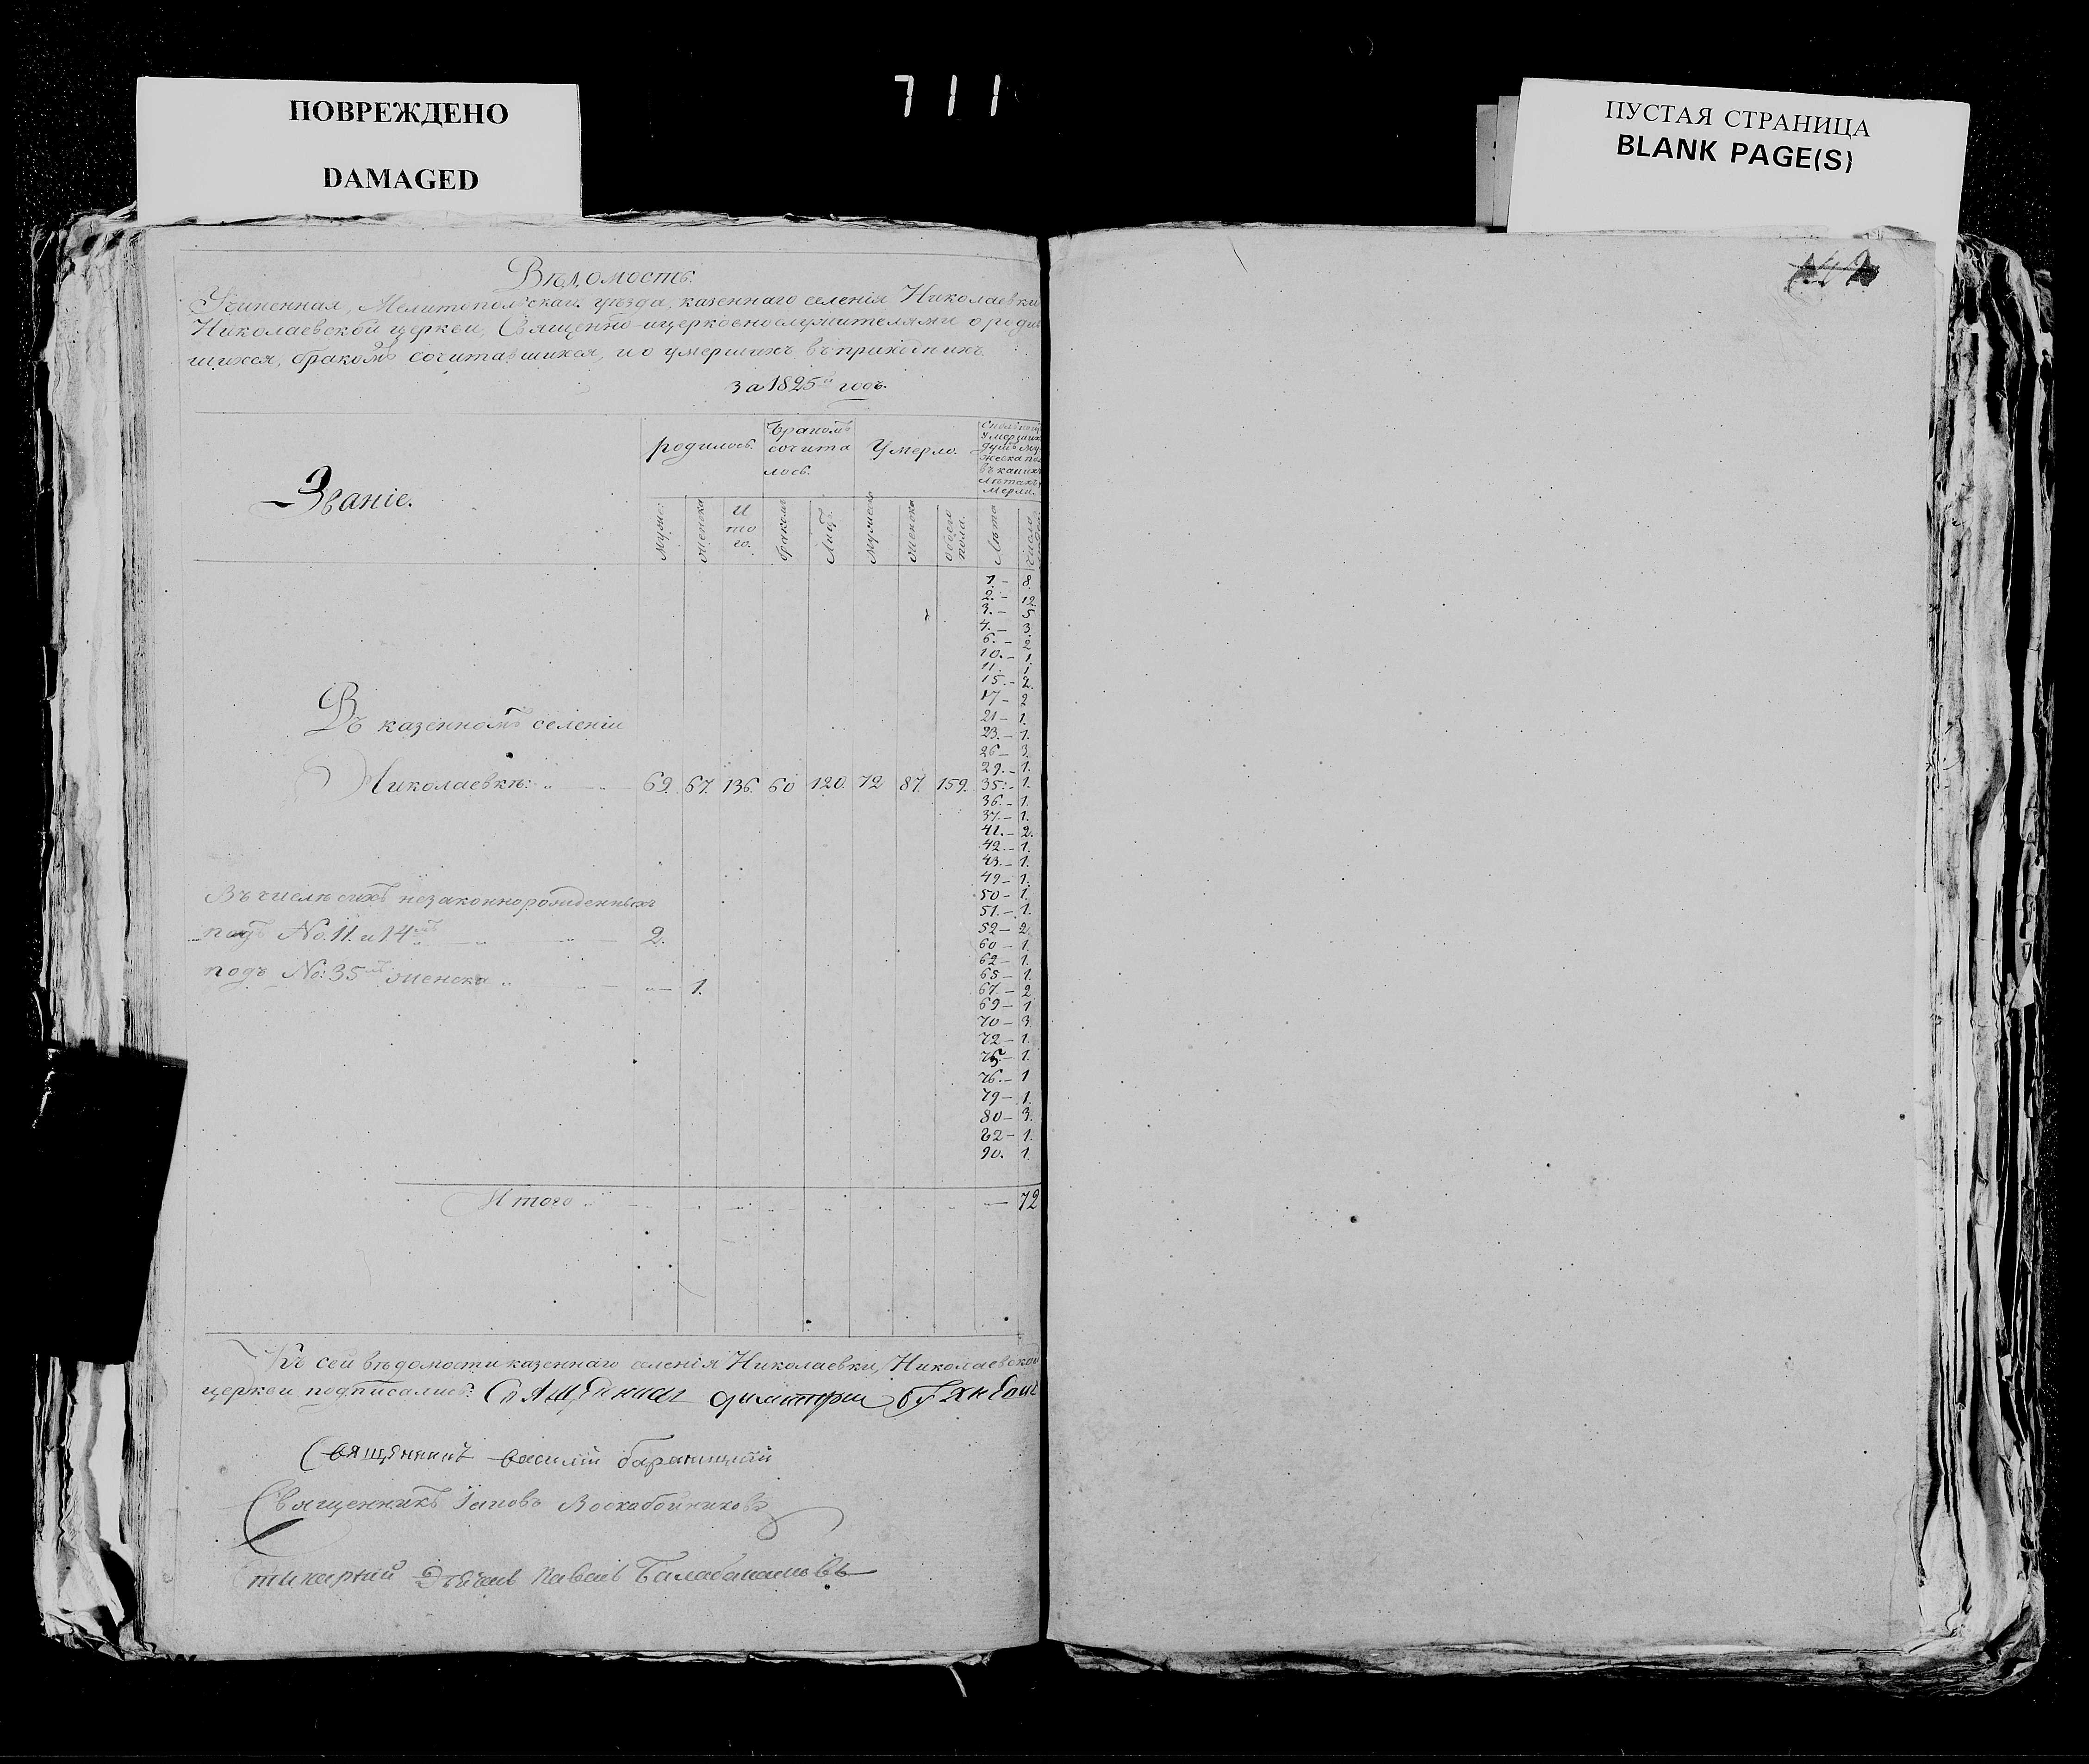 711
ПОВРЕЖДЕНО
DAMAGED
ПУСТАЯ СТРАНИЦА
BLANK PAGE(S)
Вѣдомость.
Учиненная, Мелитопольскаго уѣзда, казеннаго селенія Николаевки
Николаевской церкви, Священно-ицерковнослужителями о родив
шихся, бракомъ сочитавшихся, и о умершихъ въ приходѣ ихъ.
За 1825й годъ.
Званіе.
родилось.
Бракомъ
сочита
лось.
Умерло.
умершихъ
душъ му
жеска пола
въ какихъ
лѣтахъ
мерли.
мужес:
женска
И
то
го.
браковъ
Лицъ.
мужеска
женска
обоего
пола.
Лѣта
число
1. - 8.
2. - 12.
3. - 5.
4. - 3.
6. - 2.
10. - 1.
11. 1
15. - 2.
17 - 2
21 - 1.
23. - 1.
26 - 3
29. - 1.
35. - 1.
36. - 1.
37. - 1.
41. - 2.
42. - 1.
43. - 1.
49 - 1.
50 - 1.
51. - 1.
52 - 2.
60 - 1.
62 - 1.
65 - 1.
67. - 2
69 - 1
70 - 3.
72 - 1.
75 - 1.
76. - 1
79 - 1.
80 - 3.
82 - 1.
90. 1.
Въ казенномъ селеніи
Николаевкѣ: 69. 67. 136. 60 120. 72 87. 159.
Въ числѣ сихъ незаконнорожденныхъ
подъ No. 11. и 14мъ 2.
подъ No: 35мъ женска 1.
Итого — 72
Къ сей вѣдомости казеннаго селенія Николаевки, Николаевской
церкви подписались: Священникъ Димитрій
Священникъ Василій
Священникъ Іаковъ Воскобойниковъ
Стихарный Дьячекъ Павелъ